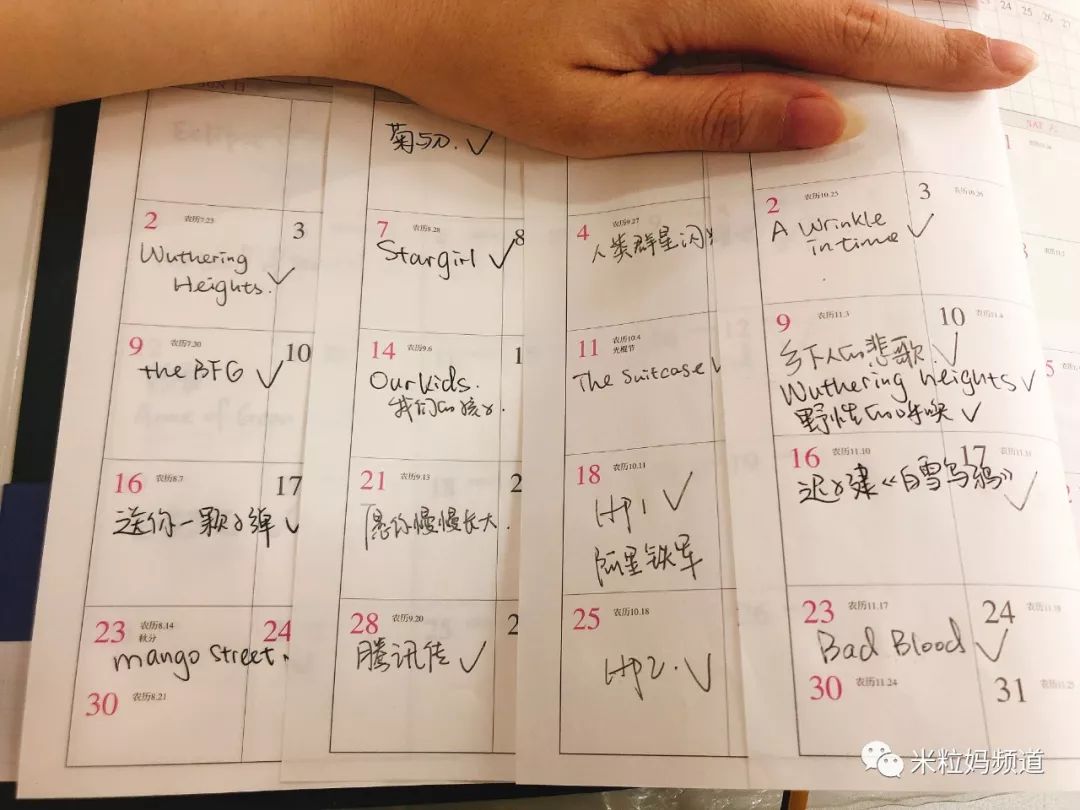 2 农历7.23 3
Wuthering
Heights. ✓
9 农历7.30 10
the BFG ✓
16 农历8.7 17
送你一颗子弹 ✓
23 农历8.14 24
秋分
mango street.
30 农历8.21
菊与刀. ✓
7 农历8.28 8
Stargirl ✓
14 农历9.6 1
Our kids.
我们的孩子.
21 农历9.13 2
愿你慢慢长大.
28 农历9.20 2
腾讯传 ✓
4 农历9.27
人类群星闪
11 农历10.4
光棍节
The suitcase ✓
18 农历10.11
Hp1 ✓
阿里铁军
25 农历10.18
Hp2. ✓
2 农历10.25 3 农历10.26
A Wrinkle
in time ✓
9 农历11.3 10 农历11.4
乡下人的悲歌. ✓
Wuthering heights ✓
野性的呼唤 ✓
16 农历11.10 17 农历11.11
迟子建《白雪乌鸦》 ✓
23 农历11.17 24 农历11.18
Bad Blood ✓
30 农历11.24 31 农历11.25
24 25 26 27
SAT 六
1
米粒妈频道